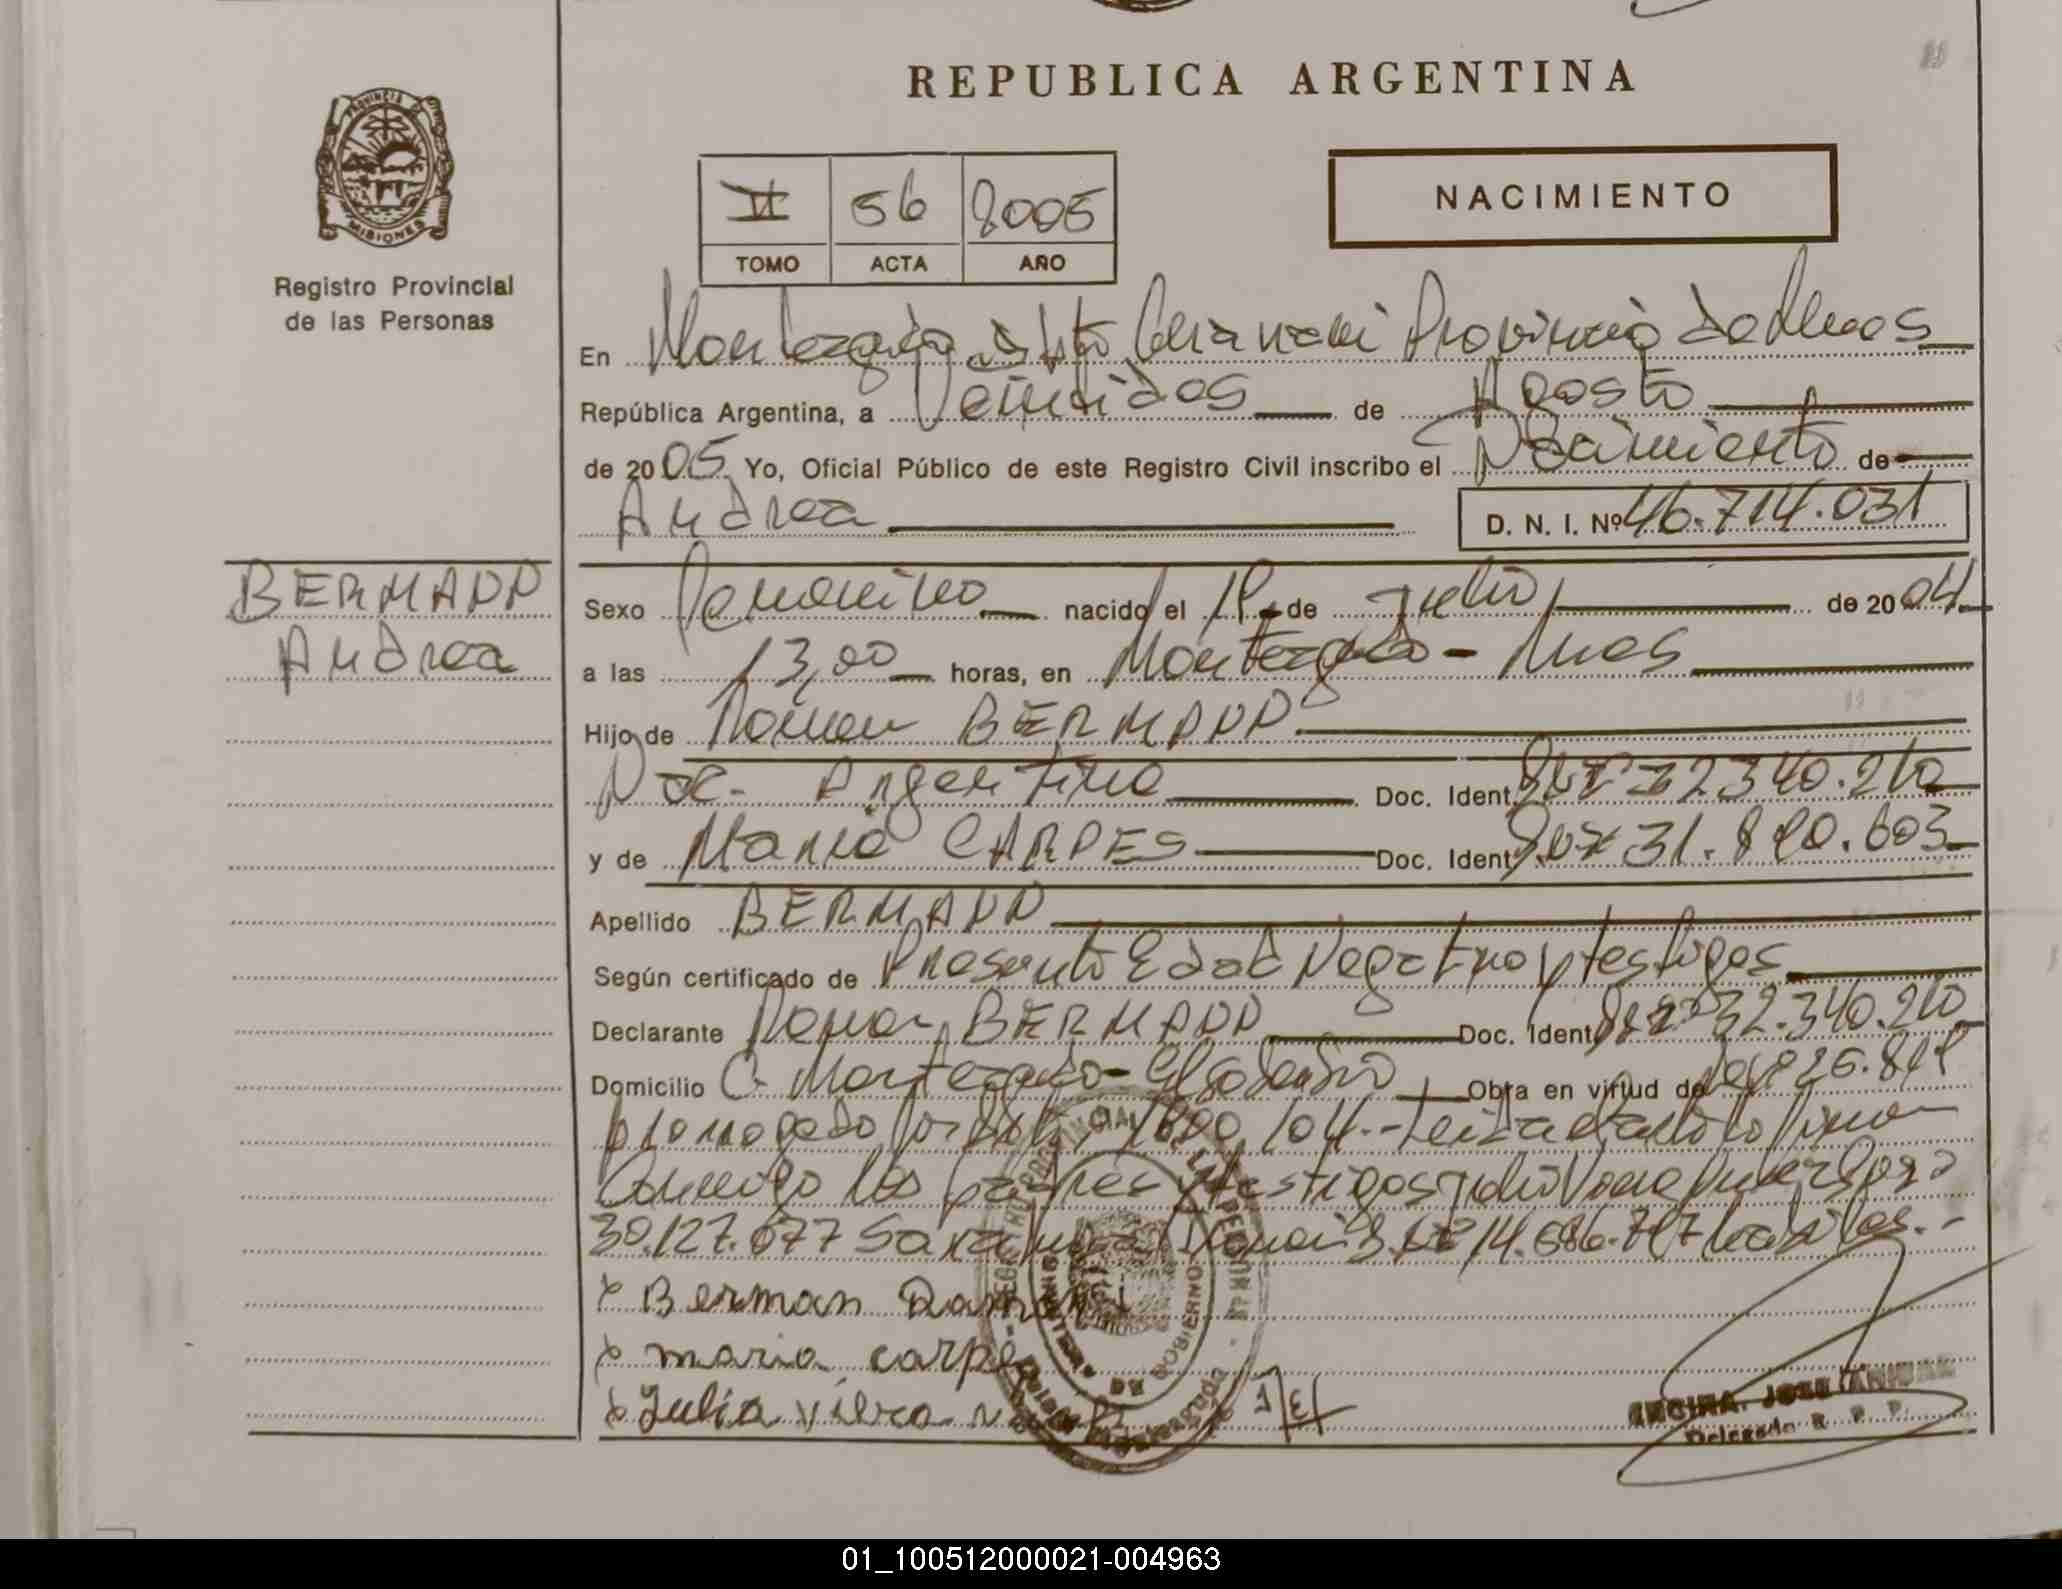 REPUBLICA ARGENTINA
PROVINCIA
MISIONES
Registro Provincial
de las Personas
VI 56 2005
TOMO ACTA AÑO
NACIMIENTO
En Monteagudo Dpto Guarani Provincia de Mnes
República Argentina, a Veintidos de Agosto
de 2005 Yo, Oficial Público de este Registro Civil inscribo el Nacimiento de
Andrea D. N. I. Nº 46.714.031
BERMANN
Andrea
Sexo Femenino nacido el 19 de Julio de 2004
a las 13,00 horas, en Monteagudo - Mnes
Hijo de Ramon BERMANN
Nac. Argentina Doc. Ident. 32.340.210
y de Maria CARPES Doc. Ident. 31.890.603
Apellido BERMANN
Según certificado de Presunta Edad Negativo y testigos
Declarante Ramon BERMANN Doc. Ident. 32.340.210
Domicilio C. Monteagudo - El Soberbio Obra en virtud de Ley 25.819
prorrogado por 1690/04.- Leida el acta la firman
Conmigo los padres y testigos
30.127.677 14.686.797
x Berman Ramon
x maria carpe
x Julia
ENCINA, JOSE
Delegado R. P. P.
01_100512000021-004963